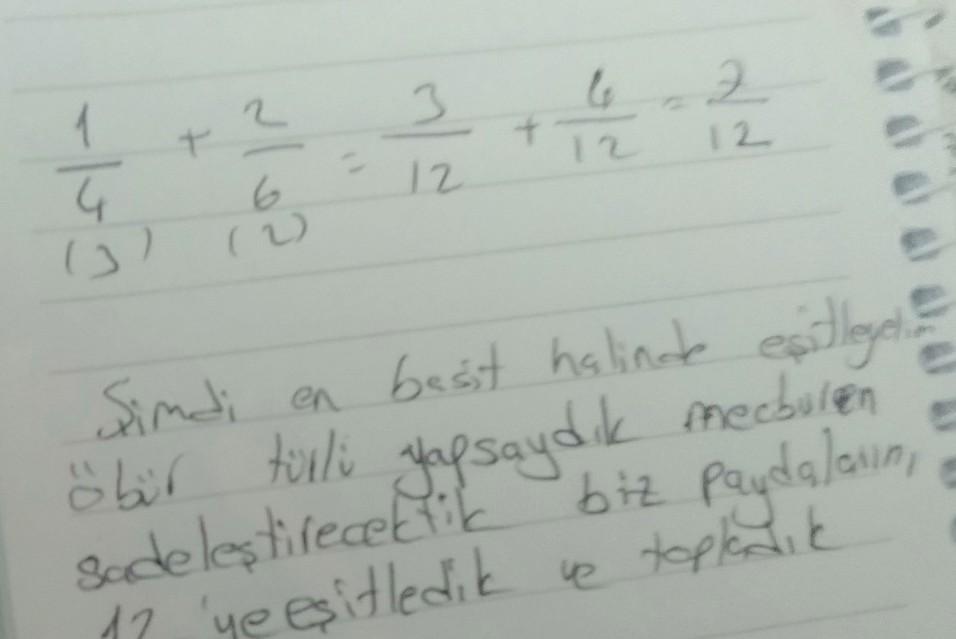 1/4 + 2/6 = 3/12 + 4/12 = 7/12
(3) (2)
Şimdi en basit halinde eşitleyelim
öbür türlü yapsaydık mecburen
sadeleştirecektik biz paydaların,
12 'ye eşitledik ve topladık